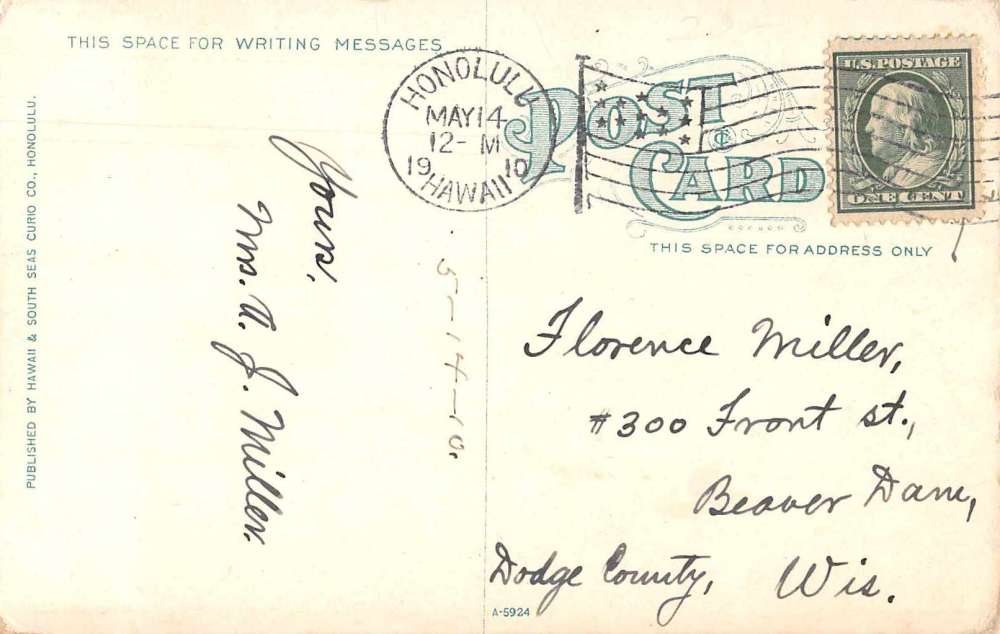 THIS SPACE FOR WRITING MESSAGES
PUBLISHED BY HAWAII & SOUTH SEAS CURIO CO., HONOLULU.
Yours,
Mrs. A. J. Miller.
5-14-10.
HONOLULU
MAY 14
12-M
1910
HAWAII
POST
CARD
U.S. POSTAGE
ONE CENT
THIS SPACE FOR ADDRESS ONLY
Florence Miller,
#300 Front st.,
Beaver Dam,
Dodge County, Wis.
A-5924